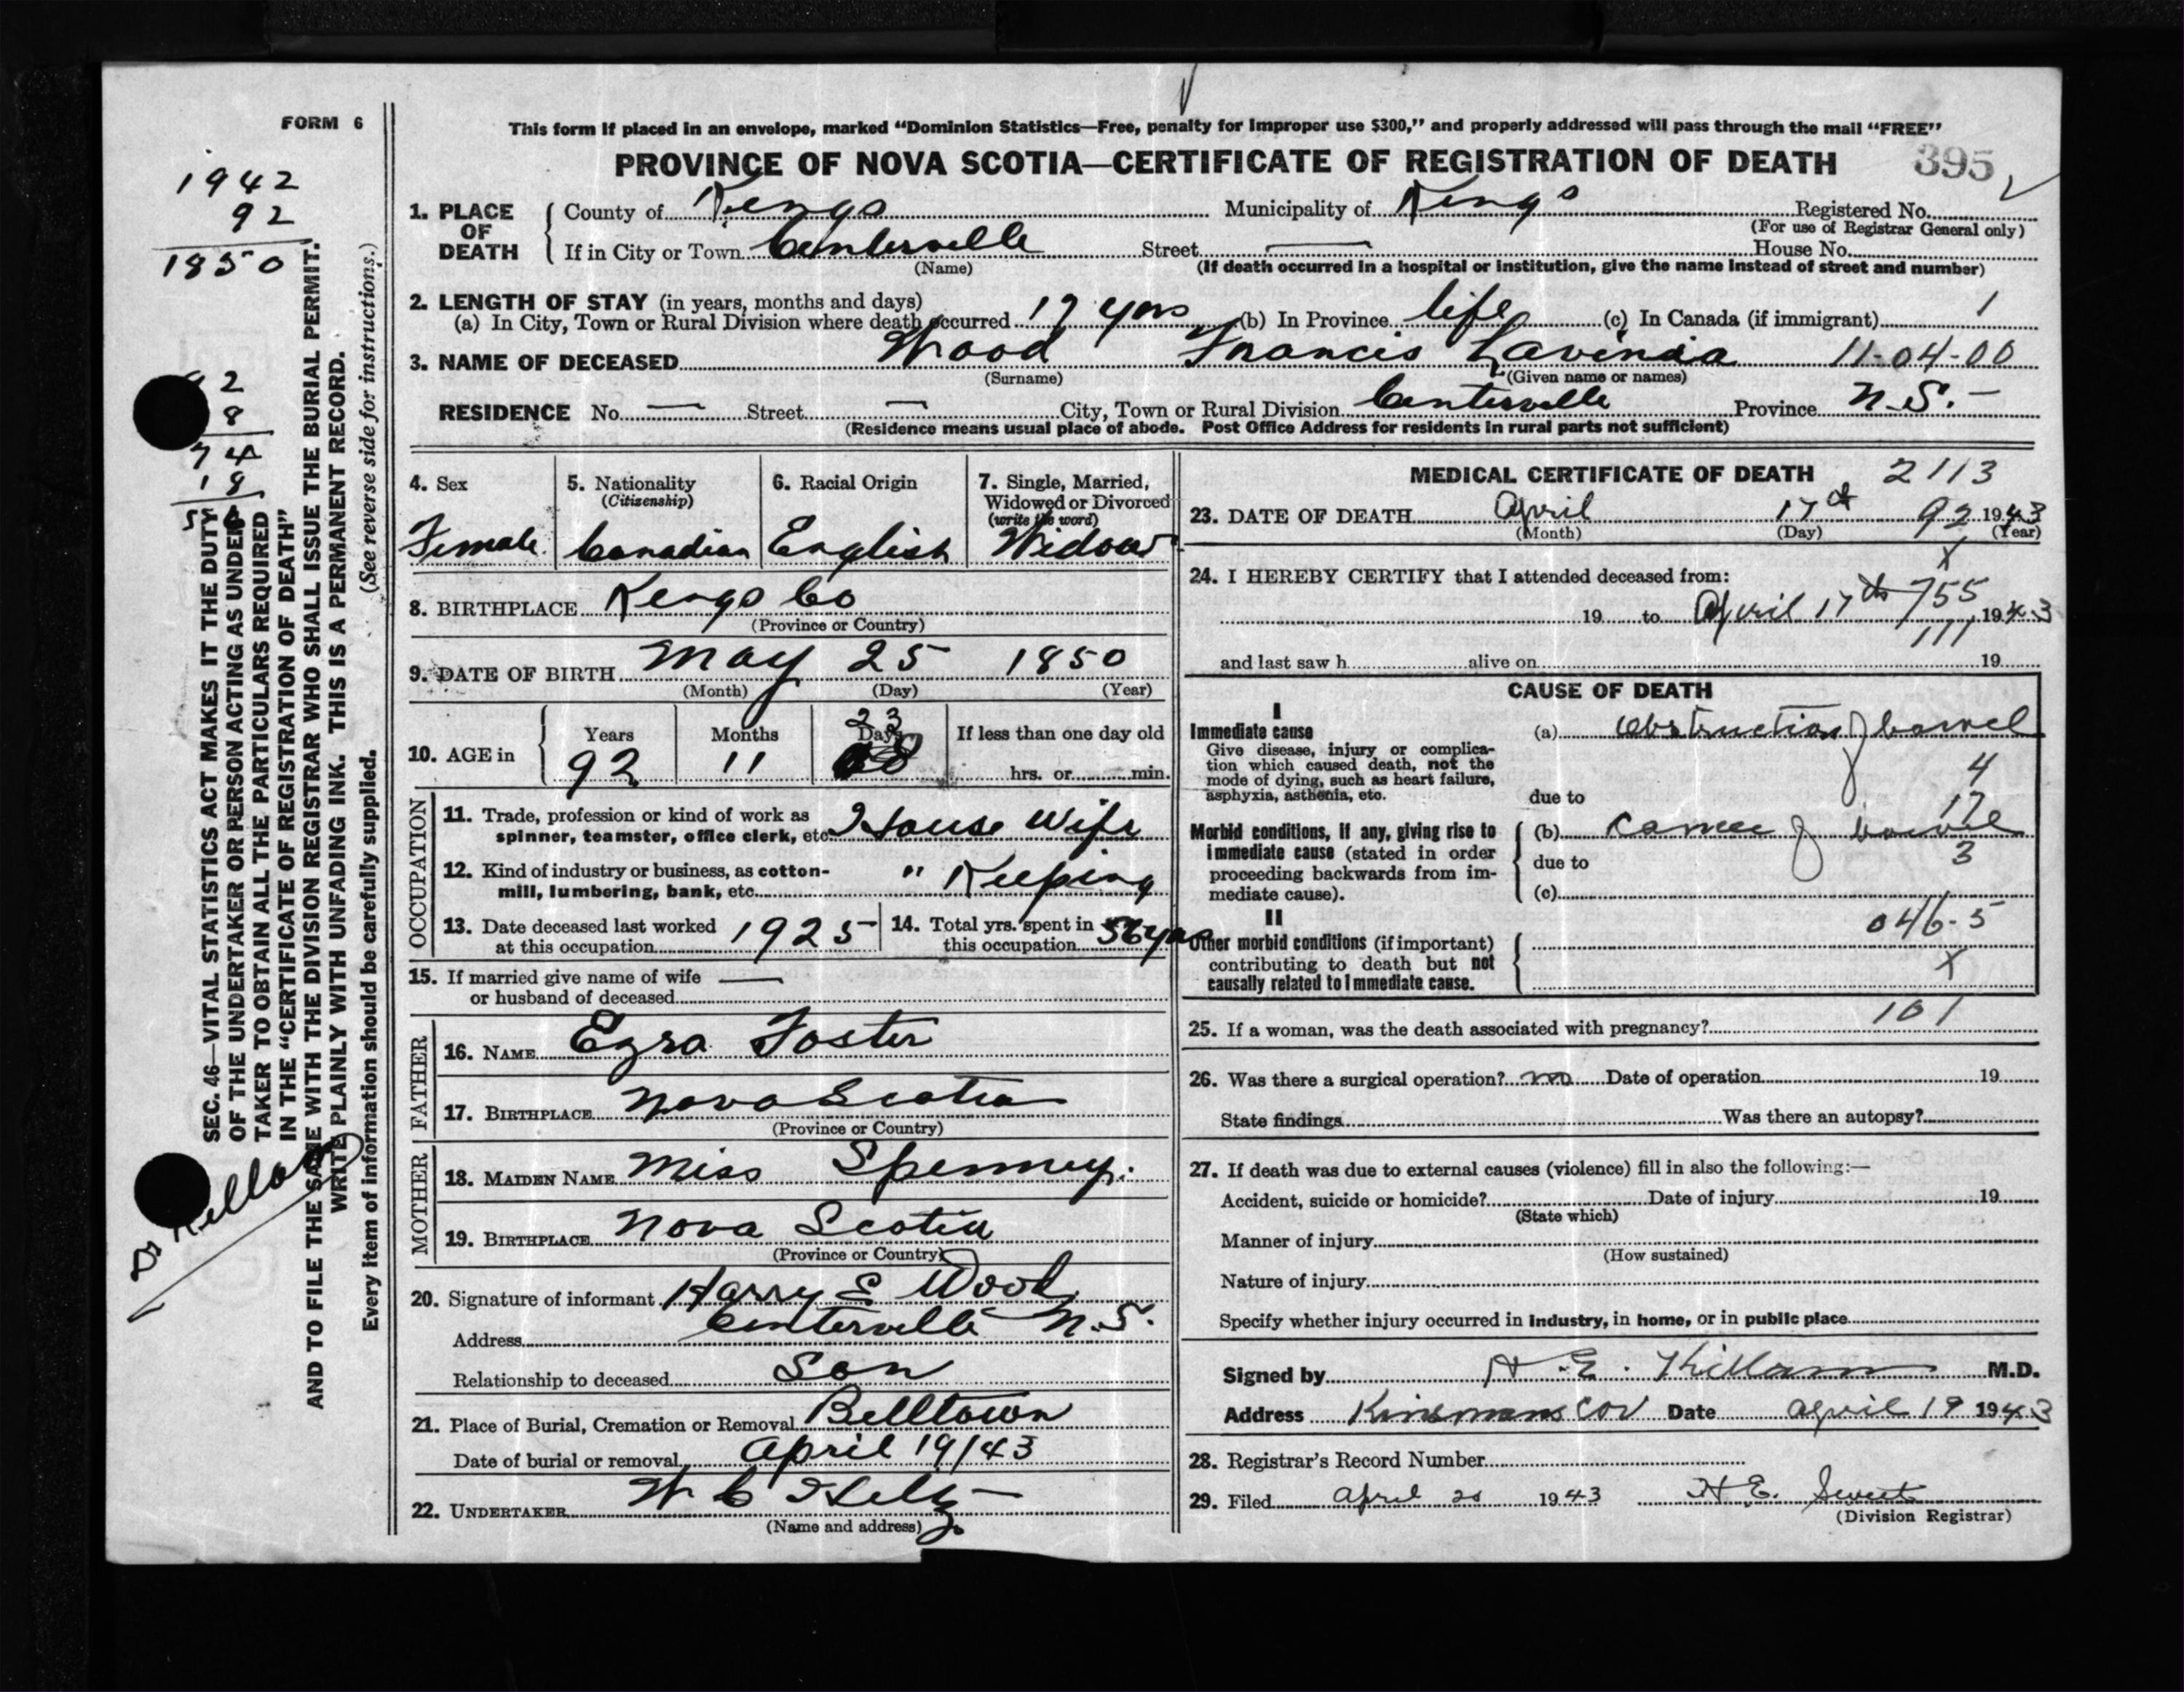 FORM 6
This form if placed in an envelope, marked “Dominion Statistics—Free, penalty for improper use $300,” and properly addressed will pass through the mail “FREE”
PROVINCE OF NOVA SCOTIA—CERTIFICATE OF REGISTRATION OF DEATH 395
1942
92
1850
2
8
74
18
Dr Killam
SEC. 46—VITAL STATISTICS ACT MAKES IT THE DUTY
OF THE UNDERTAKER OR PERSON ACTING AS UNDER-
TAKER TO OBTAIN ALL THE PARTICULARS REQUIRED
IN THE “CERTIFICATE OF REGISTRATION OF DEATH”
AND TO FILE THE SAME WITH THE DIVISION REGISTRAR WHO SHALL ISSUE THE BURIAL PERMIT.
WRITE PLAINLY WITH UNFADING INK. THIS IS A PERMANENT RECORD.
Every item of information should be carefully supplied. (See reverse side for instructions.)
1. PLACE OF DEATH
County of Kings Municipality of Kings Registered No.
(For use of Registrar General only)
If in City or Town Centerville Street — House No.
(Name) (If death occurred in a hospital or institution, give the name instead of street and number)
2. LENGTH OF STAY (in years, months and days)
(a) In City, Town or Rural Division where death occurred 17 yrs (b) In Province life (c) In Canada (if immigrant) 1
3. NAME OF DECEASED Wood Francis Lavinia 11-04-00
(Surname) (Given name or names)
RESIDENCE No. — Street — City, Town or Rural Division Centerville Province N.S. —
(Residence means usual place of abode. Post Office Address for residents in rural parts not sufficient)
4. Sex
Female
5. Nationality
(Citizenship)
Canadian
6. Racial Origin
English
7. Single, Married,
Widowed or Divorced
(write the word)
Widow
8. BIRTHPLACE Kings Co
(Province or Country)
9. DATE OF BIRTH May 25 1850
(Month) (Day) (Year)
10. AGE in
Years
92
Months
11
Days
23
If less than one day old
hrs. or min.
OCCUPATION
11. Trade, profession or kind of work as
spinner, teamster, office clerk, etc. House Wife
12. Kind of industry or business, as cotton-
mill, lumbering, bank, etc. " Keeping
13. Date deceased last worked
at this occupation 1925
14. Total yrs. spent in
this occupation 56 yrs
15. If married give name of wife —
or husband of deceased
FATHER
16. NAME Ezra Foster
17. BIRTHPLACE Nova Scotia
(Province or Country)
MOTHER
18. MAIDEN NAME Miss Spenney.
19. BIRTHPLACE Nova Scotia
(Province or Country)
20. Signature of informant Harry E Wood
Address Centerville N.S.
Relationship to deceased Son
21. Place of Burial, Cremation or Removal Belltown
Date of burial or removal April 19/43
22. UNDERTAKER W C
(Name and address)
MEDICAL CERTIFICATE OF DEATH 2113
23. DATE OF DEATH April 17th 92 1943
(Month) (Day) (Year)
X
24. I HEREBY CERTIFY that I attended deceased from:
755
19 to April 17th 1943
111
and last saw h alive on 19
CAUSE OF DEATH
I
Immediate cause
Give disease, injury or complica-
tion which caused death, not the
mode of dying, such as heart failure,
asphyxia, asthenia, etc.
(a) Obstruction of bowel
4
due to
17
Morbid conditions, if any, giving rise to
immediate cause (stated in order
proceeding backwards from im-
mediate cause).
(b) Cancer of bowel
due to 3
(c)
II
Other morbid conditions (if important)
contributing to death but not
causally related to immediate cause.
046-5
X
101
25. If a woman, was the death associated with pregnancy?
26. Was there a surgical operation? no Date of operation 19
State findings Was there an autopsy?
27. If death was due to external causes (violence) fill in also the following:—
Accident, suicide or homicide? Date of injury 19
(State which)
Manner of injury
(How sustained)
Nature of injury
Specify whether injury occurred in industry, in home, or in public place
Signed by H. E. Killam M.D.
Address Kinsmans Cor Date April 19 1943
28. Registrar's Record Number
29. Filed April 20 1943 H E. Sweet
(Division Registrar)